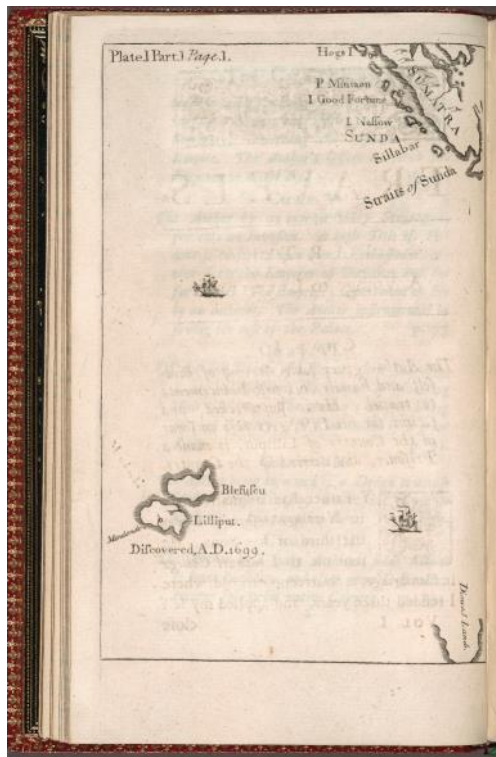 Plate.I Part.I Page.I.
Hogs I
P Mintaon
I Good Fortune
I Naſſow
SUNDA
SUMATRA
Sillabar
Straits of Sunda
Blefuſcu
Lilliput.
Mendendo
Diſcovered, A.D. 1699.
Diemens Land